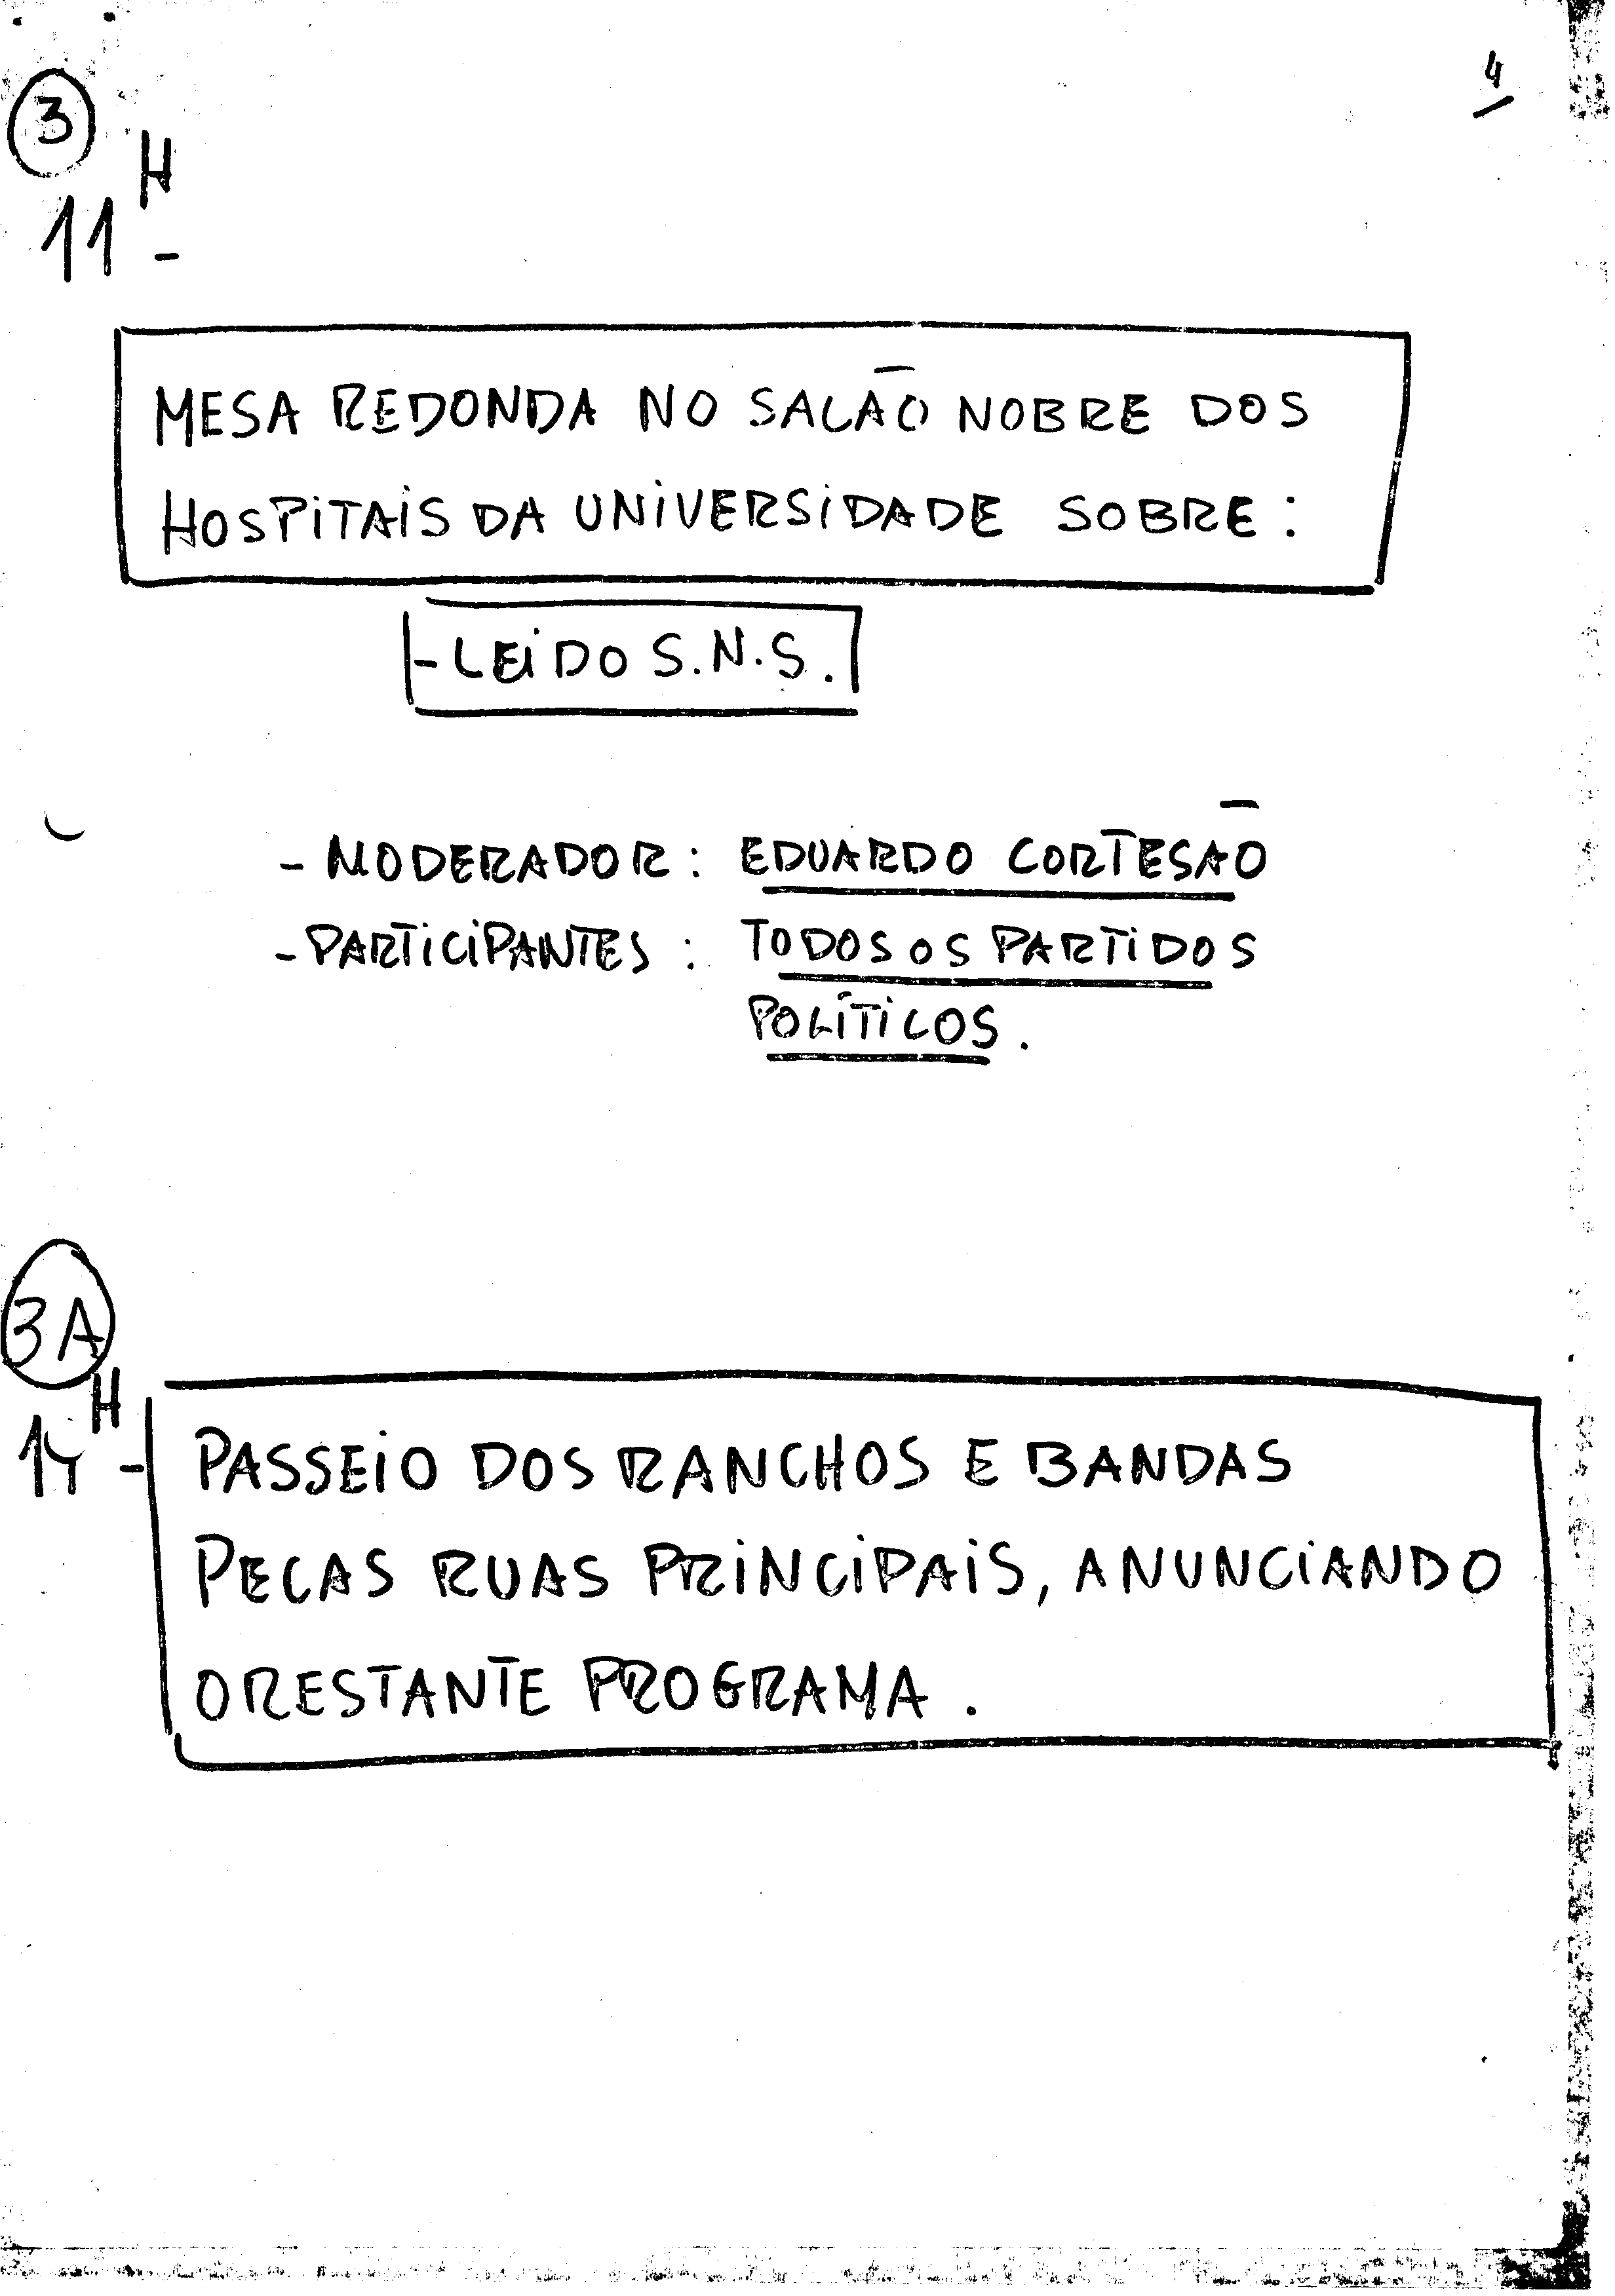 4
3
11H -
MESA REDONDA NO SALÃO NOBRE DOS
HOSPITAIS DA UNIVERSIDADE SOBRE:
- LEI DO S.N.S.
- MODERADOR: EDUARDO CORTESÃO
- PARTICIPANTES: TODOS OS PARTIDOS
POLÍTICOS.
3A
14H -
PASSEIO DOS RANCHOS E BANDAS
PELAS RUAS PRINCIPAIS, ANUNCIANDO
O RESTANTE PROGRAMA.